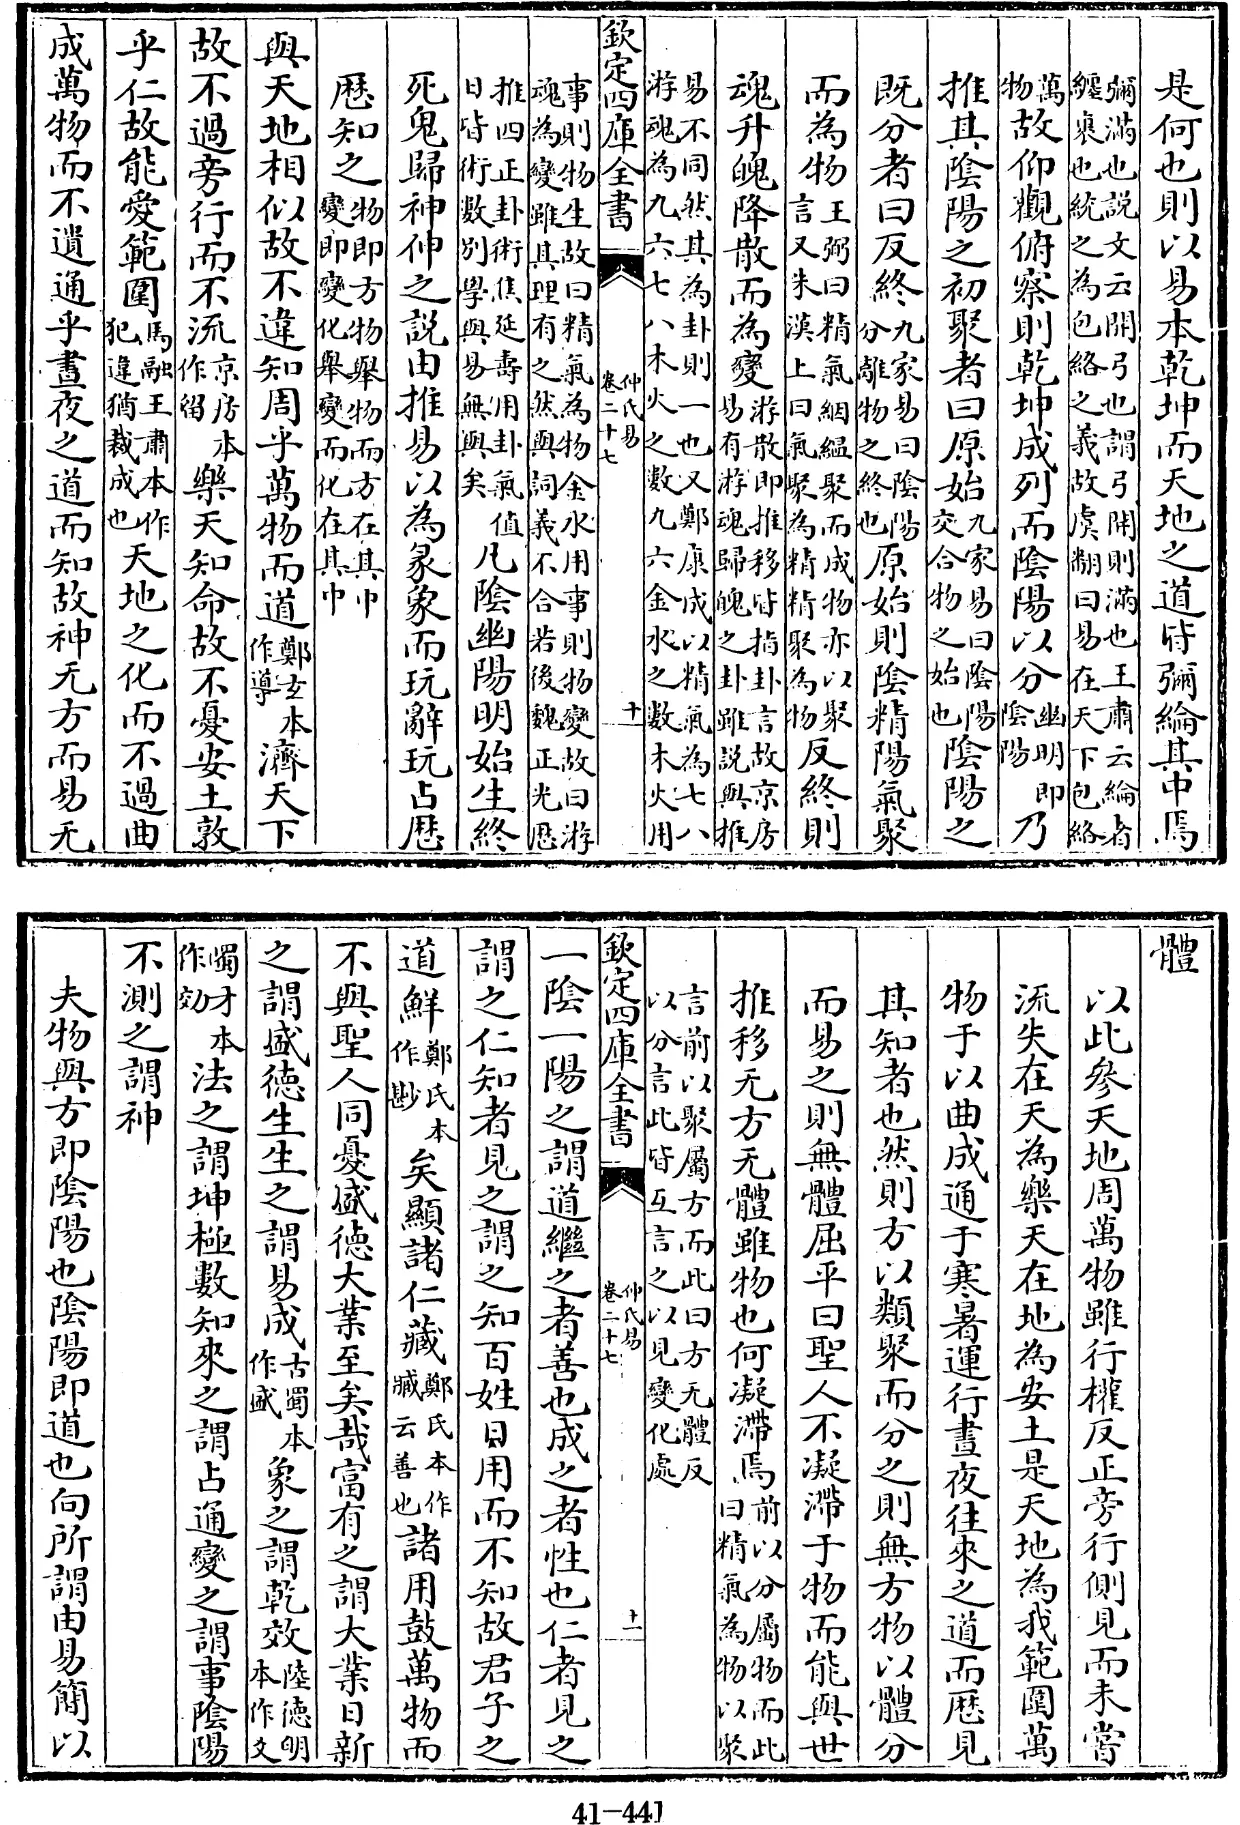 是何也則以易本乾坤而天地之道皆彌綸其中焉
彌滿也說文云開弓也謂弓開則滿也王肅云綸者
纏裹也統之為包絡之義故虞翻曰易在天下包絡
萬
物故仰觀俯察則乾坤成列而陰陽以分幽明即
陰陽乃
推其陰陽之初聚者曰原始九家易曰陰陽
交合物之始也陰陽之
既分者曰反終九家易曰陰陽
分離物之終也原始則陰精陽氣聚
而為物王弼曰精氣絪縕聚而成物亦以聚
言又朱漢上曰氣聚為精精聚為物反終則
魂升魄降散而為變游散即推移皆指卦言故京房
易有游魂歸魄之卦雖說與推
易不同然其為卦則一也又鄭康成以精氣為七八
游魂為九六七八木火之數九六金水之數木火用
欽定四庫全書
仲氏易
卷二十七
十
事則物生故曰精氣為物金水用事則物變故曰游
魂為變雖其理有之然與詞義不合若後魏正光厯
推四正卦術焦延壽用卦氣值
日皆術數別學與易無與矣凡陰幽陽明始生終
死鬼歸神伸之說由推易以為象象而玩辭玩占歴
歴知之物即方物舉物而方在其中
變即變化舉變而化在其中
與天地相似故不違知周乎萬物而道鄭玄本
作導濟天下
故不過旁行而不流京房本
作留樂天知命故不憂安土敦
乎仁故能愛範圍馬融王肅本作
犯違猶裁成也天地之化而不過曲
成萬物而不遺通乎晝夜之道而知故神无方而易无
體
以此參天地周萬物雖行權反正旁行側見而未嘗
流失在天為樂天在地為安土是天地為我範圍萬
物于以曲成通于寒暑運行晝夜往來之道而厯見
其知者也然則方以類聚而分之則無方物以體分
而易之則無體屈平曰聖人不凝滯于物而能與世
推移无方无體雖物也何凝滯焉前以分屬物而此
曰精氣為物以聚
言前以聚屬方而此曰方无體反
以分言此皆互言之以見變化處
欽定四庫全書
仲氏易
卷二十七
十一
一陰一陽之謂道繼之者善也成之者性也仁者見之
謂之仁知者見之謂之知百姓日用而不知故君子之
道鮮鄭氏本
作尟矣顯諸仁藏鄭氏本作
臧云善也諸用鼓萬物而
不與聖人同憂盛德大業至矣哉富有之謂大業日新
之謂盛德生生之謂易成古蜀本
作盛象之謂乾效陸德明
本作爻
蜀才本
作効法之謂坤極數知來之謂占通變之謂事陰陽
不測之謂神
夫物與方即陰陽也陰陽即道也向所謂由易簡以
41-441